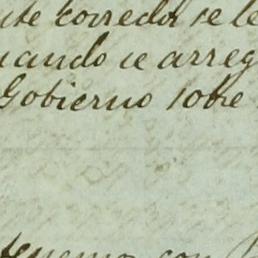 nte corredor se le
uando se arreg
Gobierno sobre
tenemo con